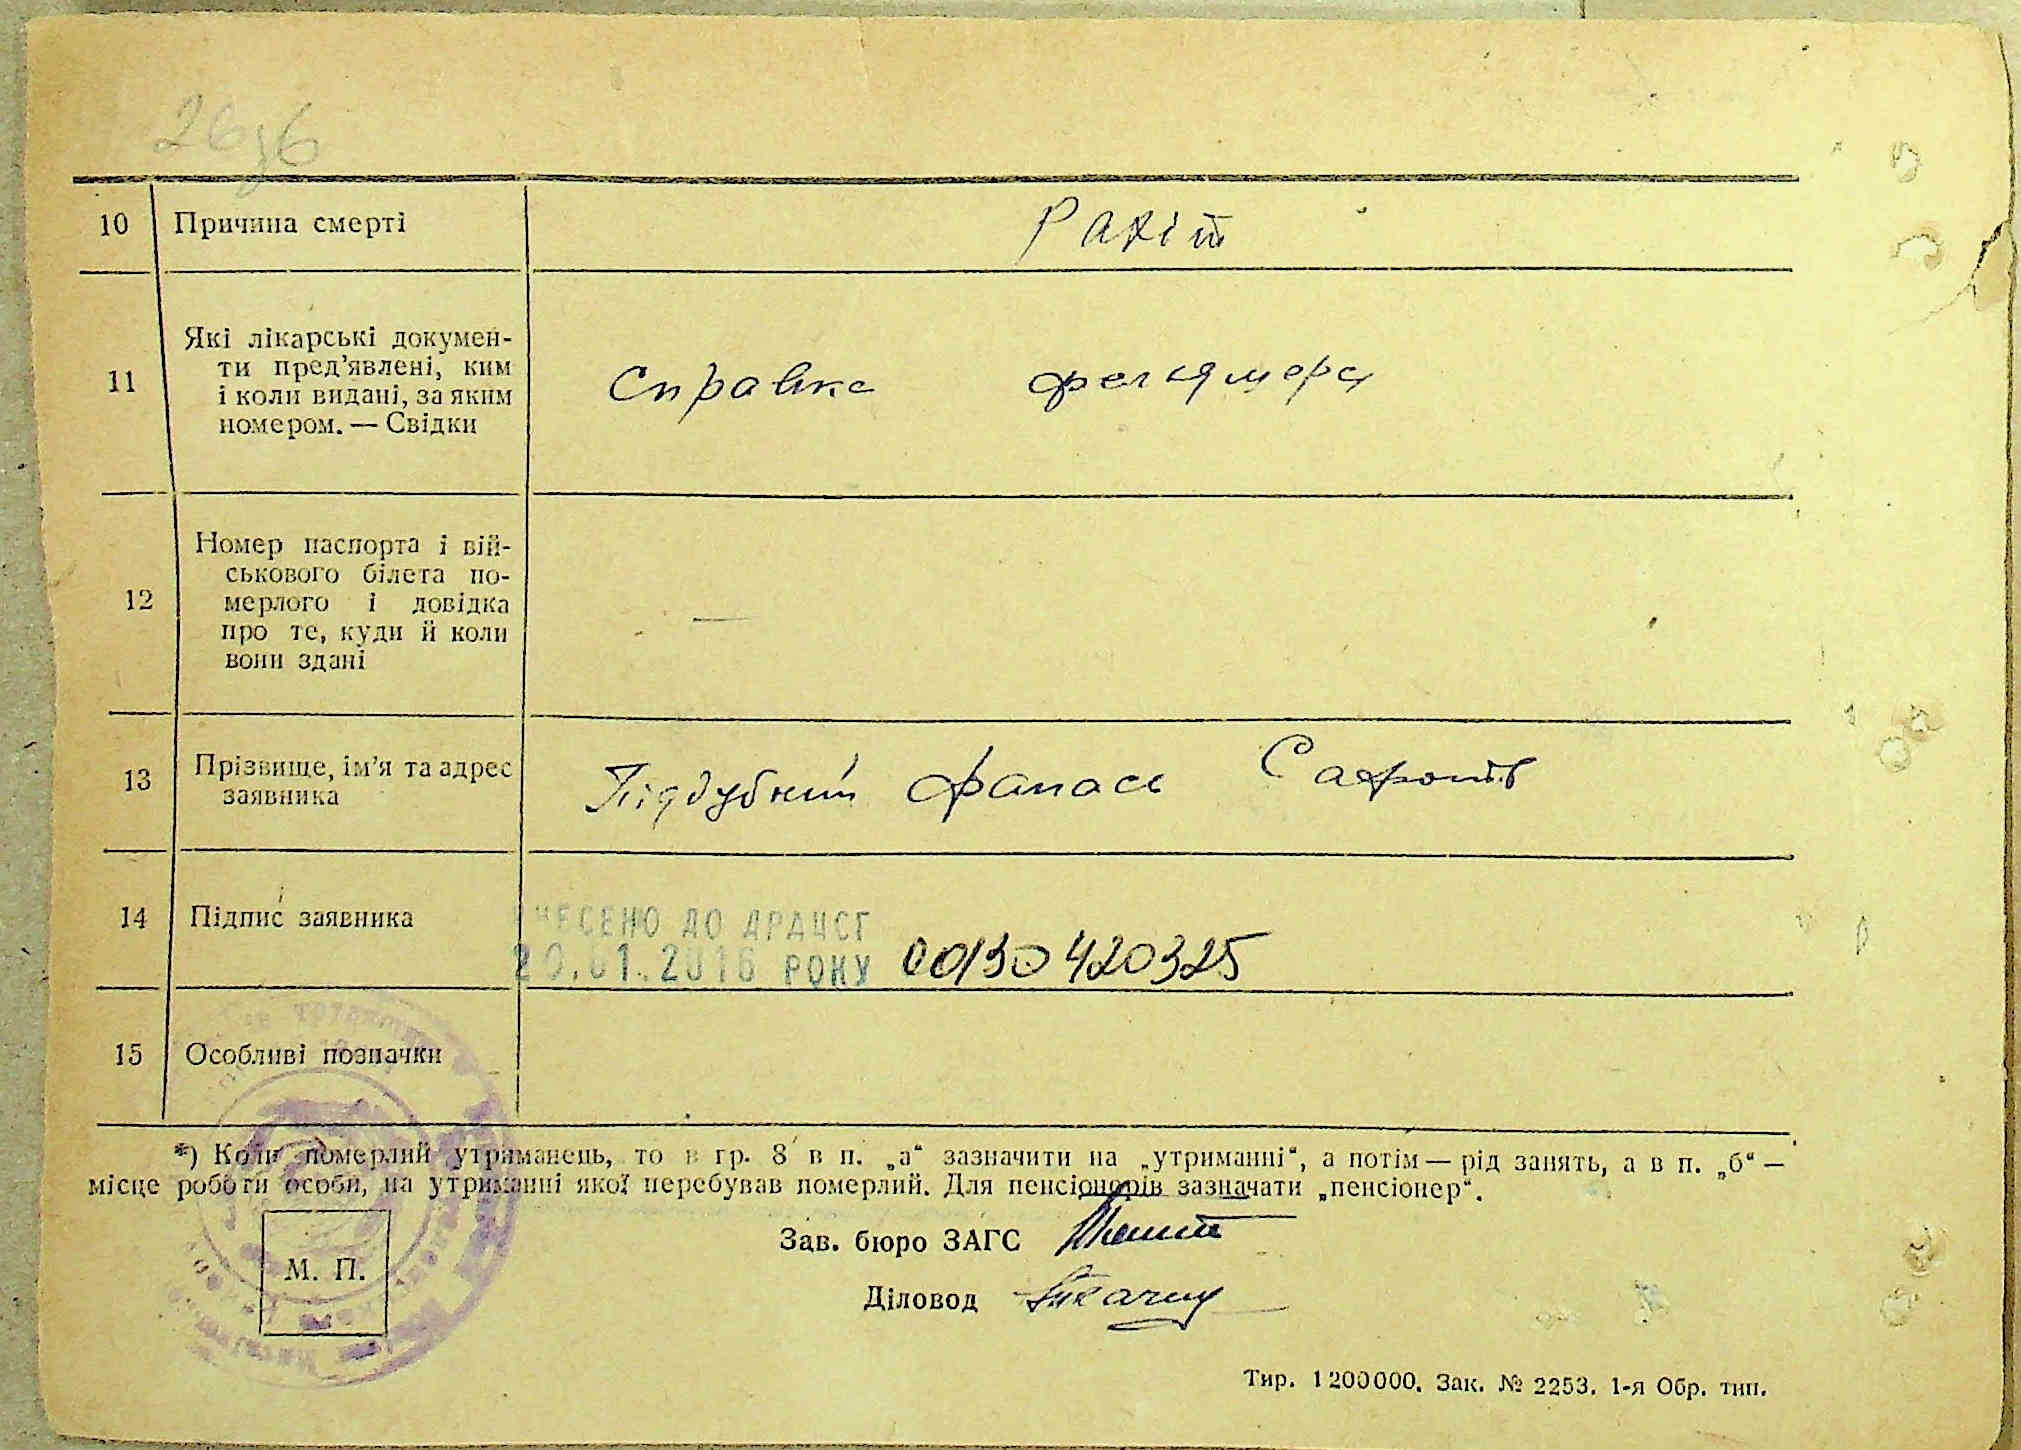 10 Причина смерті Рахіт
11 Які лікарські докумен-
ти пред'явлені, ким
і коли видані, за яким
номером. — Свідки
Справка фельдшера
12 Номер паспорта і вій-
ськового білета по-
мерлого і довідка
про те, куди й коли
вони здані
—
13 Прізвище, ім'я та адрес
заявника
Піддубний Фанась
14 Підпис заявника
ВНЕСЕНО ДО ДРАЦСГ
20.01.2016 РОКУ 00130420325
15 Особливі позначки
*) Коли померлий утриманець, то в гр. 8 в п. „а“ зазначити на „утриманні“, а потім — рід занять, а в п. „б“ —
місце роботи особи, на утриманні якої перебував померлий. Для пенсіонерів зазначати „пенсіонер“.
Зав. бюро ЗАГС
М. П.
Діловод
Тир. 1200000. Зак. № 2253. 1-я Обр. тип.